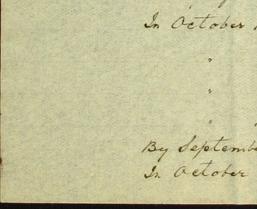 In October
"
"
"
By Septemb
In October